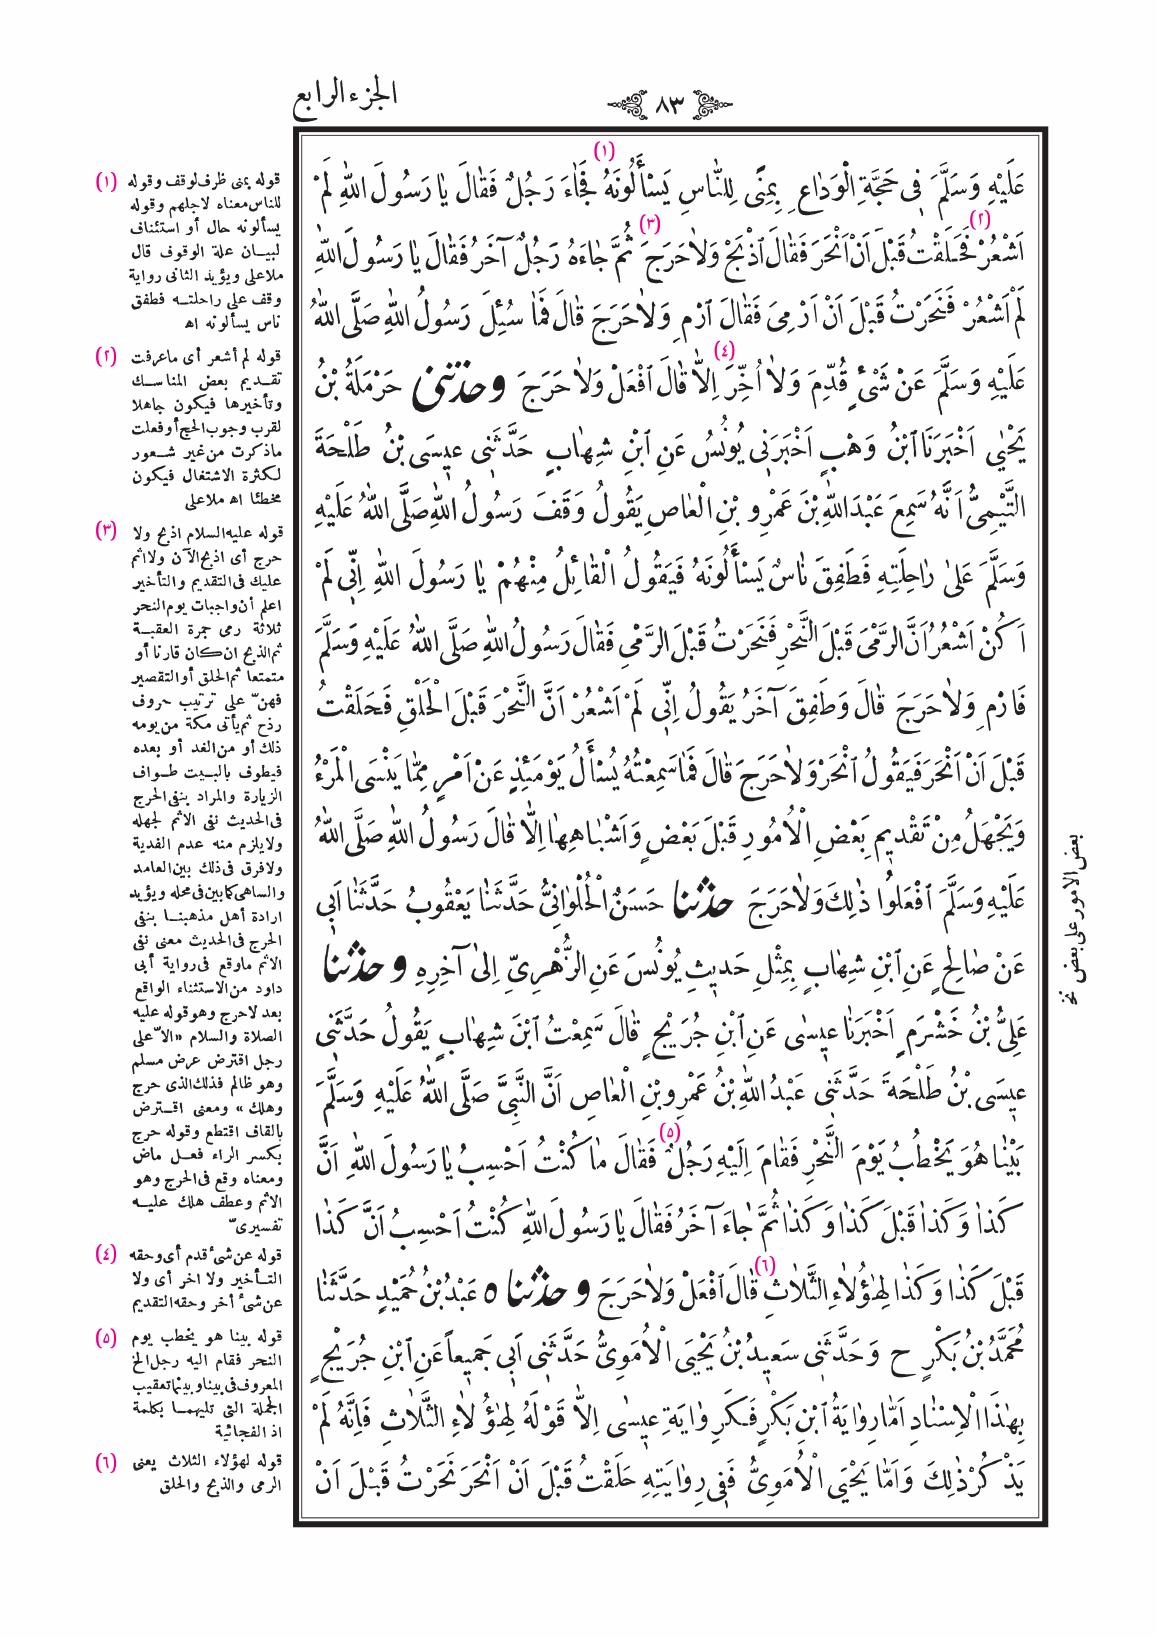 الجزء الرابع
٨٣
(١)
عَلَيْهِ وَسَلَّمَ فِى حَجَّةِ الْوَدَاعِ بِمِنًى لِلنَّاسِ يَسْأَلُونَهُ فَجَاءَ رَجُلٌ فَقَالَ يَا رَسُولَ اللهِ لَمْ
(٢)
(٣)
اَشْعُرْ فَحَلَقْتُ قَبْلَ اَنْ اَنْحَرَ فَقَالَ اذْبَحْ وَلَا حَرَجَ ثُمَّ جَاءَهُ رَجُلٌ آخَرُ فَقَالَ يَا رَسُولَ اللهِ
لَمْ اَشْعُرْ فَنَحَرْتُ قَبْلَ اَنْ اَرْمِىَ فَقَالَ ارْمِ وَلَا حَرَجَ قَالَ فَمَا سُئِلَ رَسُولُ اللهِ صَلَّى اللهُ
(٤)
عَلَيْهِ وَسَلَّمَ عَنْ شَىْءٍ قُدِّمَ وَلَا اُخِّرَ اِلَّا قَالَ افْعَلْ وَلَا حَرَجَ وحدثنى حَرْمَلَةُ بْنُ
يَحْيٰى اَخْبَرَنَا ابْنُ وَهْبٍ اَخْبَرَنِى يُونُسُ عَنِ ابْنِ شِهَابٍ حَدَّثَنِى عِيسَى بْنُ طَلْحَةَ
التَّيْمِىُّ اَنَّهُ سَمِعَ عَبْدَ اللهِ بْنَ عَمْرِو بْنِ الْعَاصِ يَقُولُ وَقَفَ رَسُولُ اللهِ صَلَّى اللهُ عَلَيْهِ
وَسَلَّمَ عَلٰى رَاحِلَتِهِ فَطَفِقَ نَاسٌ يَسْأَلُونَهُ فَيَقُولُ الْقَائِلُ مِنْهُمْ يَا رَسُولَ اللهِ اِنِّى لَمْ
اَكُنْ اَشْعُرُ اَنَّ الرَّمْىَ قَبْلَ النَّحْرِ فَنَحَرْتُ قَبْلَ الرَّمْىِ فَقَالَ رَسُولُ اللهِ صَلَّى اللهُ عَلَيْهِ وَسَلَّمَ
فَارْمِ وَلَا حَرَجَ قَالَ وَطَفِقَ آخَرُ يَقُولُ اِنِّى لَمْ اَشْعُرْ اَنَّ النَّحْرَ قَبْلَ الْحَلْقِ فَحَلَقْتُ
قَبْلَ اَنْ اَنْحَرَ فَيَقُولُ انْحَرْ وَلَا حَرَجَ قَالَ فَمَا سَمِعْتُهُ يُسْأَلُ يَوْمَئِذٍ عَنْ اَمْرٍ مِمَّا يَنْسَى الْمَرْءُ
وَيَجْهَلُ مِنْ تَقْدِيمِ بَعْضِ الْاُمُورِ قَبْلَ بَعْضٍ وَاَشْبَاهِهَا اِلَّا قَالَ رَسُولُ اللهِ صَلَّى اللهُ
عَلَيْهِ وَسَلَّمَ افْعَلُوا ذٰلِكَ وَلَا حَرَجَ حدثنا حَسَنٌ الْحُلْوَانِىُّ حَدَّثَنَا يَعْقُوبُ حَدَّثَنَا اَبِى
عَنْ صَالِحٍ عَنِ ابْنِ شِهَابٍ بِمِثْلِ حَدِيثِ يُونُسَ عَنِ الزُّهْرِىِّ اِلٰى آخِرِهِ وحدثنا
عَلِىُّ بْنُ خَشْرَمٍ اَخْبَرَنَا عِيسٰى عَنِ ابْنِ جُرَيْجٍ قَالَ سَمِعْتُ ابْنَ شِهَابٍ يَقُولُ حَدَّثَنِى
عِيسَى بْنُ طَلْحَةَ حَدَّثَنِى عَبْدُ اللهِ بْنُ عَمْرِو بْنِ الْعَاصِ اَنَّ النَّبِىَّ صَلَّى اللهُ عَلَيْهِ وَسَلَّمَ
(٥)
بَيْنَا هُوَ يَخْطُبُ يَوْمَ النَّحْرِ فَقَامَ اِلَيْهِ رَجُلٌ فَقَالَ مَا كُنْتُ اَحْسِبُ يَا رَسُولَ اللهِ اَنَّ
كَذَا وَكَذَا قَبْلَ كَذَا وَكَذَا ثُمَّ جَاءَ آخَرُ فَقَالَ يَا رَسُولَ اللهِ كُنْتُ اَحْسِبُ اَنَّ كَذَا
(٦)
قَبْلَ كَذَا وَكَذَا لِهٰؤُلَاءِ الثَّلَاثِ قَالَ افْعَلْ وَلَا حَرَجَ وحدثناه عَبْدُ بْنُ حُمَيْدٍ حَدَّثَنَا
مُحَمَّدُ بْنُ بَكْرٍ ح وَحَدَّثَنِى سَعِيدُ بْنُ يَحْيَى الْاُمَوِىُّ حَدَّثَنِى اَبِى جَمِيعاً عَنِ ابْنِ جُرَيْجٍ
بِهٰذَا الْاِسْنَادِ اَمَّا رِوَايَةُ ابْنِ بَكْرٍ فَكَرِوَايَةِ عِيسٰى اِلَّا قَوْلَهُ لِهٰؤُلَاءِ الثَّلَاثِ فَاِنَّهُ لَمْ
يَذْكُرْ ذٰلِكَ وَاَمَّا يَحْيَى الْاُمَوِىُّ فَفِى رِوَايَتِهِ حَلَقْتُ قَبْلَ اَنْ اَنْحَرَ نَحَرْتُ قَبْلَ اَنْ
بعض الامور على بعض نخ
(١) قوله بمنى ظرف لوقف وقوله
للناس معناه لاجلهم وقوله
يسألونه حال أو استئناف
لبيان علة الوقوف قال
ملاعلى ويؤيد الثانى رواية
وقف على راحلته فطفق
ناس يسألونه اه
(٢) قوله لم أشعر أى ماعرفت
تقديم بعض المناسك
وتأخيرها فيكون جاهلا
لقرب وجوب الحج أو فعلت
ماذكرت من غير شعور
لكثرة الاشتغال فيكون
مخطئا اه ملاعلى
(٣) قوله عليه السلام اذبح ولا
حرج أى اذبح الآن ولا اثم
عليك فى التقديم والتأخير
اعلم أن واجبات يوم النحر
ثلاثة رمى جمرة العقبة
ثم الذبح ان كان قارنا أو
متمتعا ثم الحلق أو التقصير
فهنّ على ترتيب حروف
رذح ثم يأتى مكة من يومه
ذلك أو من الغد أو بعده
فيطوف بالبيت طواف
الزيارة والمراد بنفى الحرج
فى الحديث نفى الاثم لجهله
ولا يلزم منه عدم الفدية
ولا فرق فى ذلك بين العامد
والساهى كما بين فى محله ويؤيد
ارادة أهل مذهبنا بنفى
الحرج فى الحديث معنى نفى
الاثم ماوقع فى رواية أبى
داود من الاستثناء الواقع
بعد لاحرج وهو قوله عليه
الصلاة والسلام «الاّ على
رجل اقترض عرض مسلم
وهو ظالم فذلك الذى حرج
وهلك» ومعنى اقترض
بالقاف اقتطع وقوله حرج
بكسر الراء فعل ماض
ومعناه وقع فى الحرج وهو
الاثم وعطف هلك عليه
تفسيرىّ
(٤) قوله عن شىء قدم أى وحقه
التأخير ولا اخر أى ولا
عن شىء أخر وحقه التقديم
(٥) قوله بينا هو يخطب يوم
النحر فقام اليه رجل الخ
المعروف فى بينا وبينما تعقيب
الجملة التى تليهما بكلمة
اذ الفجائية
(٦) قوله لهؤلاء الثلاث يعنى
الرمى والذبح والحلق